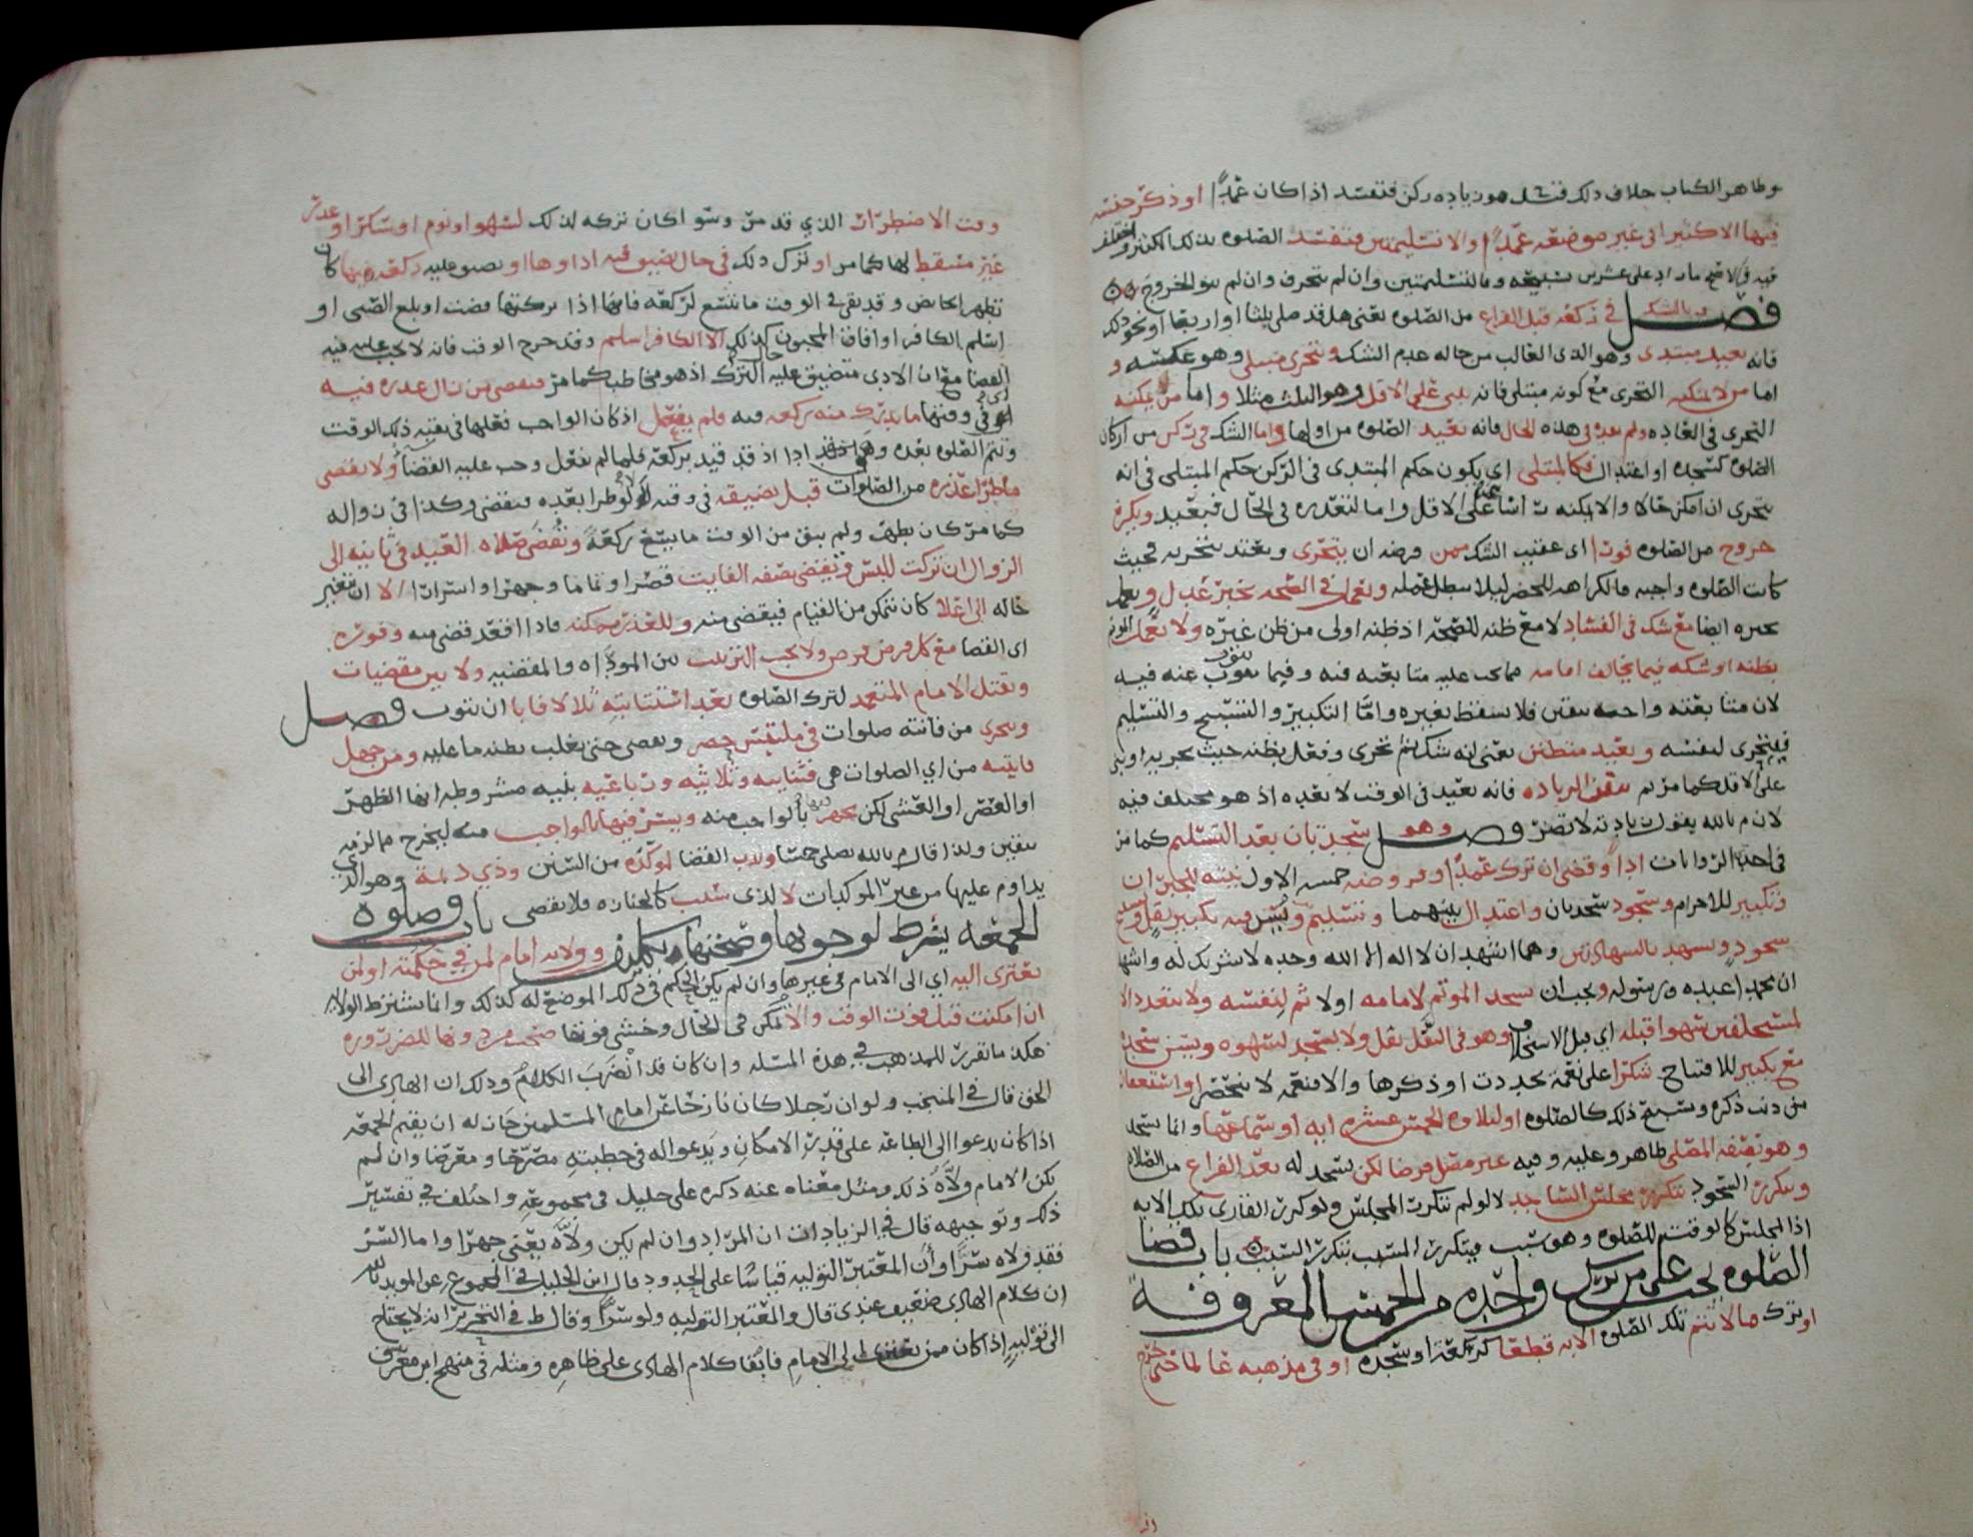 وظاهر الكتاب خلاف ذلك فتشهد هو زياده ركن فتفسد اذا كان عمداً او ذكر جنسه
فيها الا كثيرا في غير موضعه عمداً والا تسليمتين فتفسد الصلوه بذلك
فيه والاضح ما زاد على عشرين تسبيحه وبالتسليمتين وان لم ينحرف وان لم ينو الخروج
فصل وبالشك في ركعه قبل الفراغ من الصلوه يعني هل قد صلى ثلثا او اربعا او نحو ذلك
فانه يعيد مبتدى وهو الذي الغالب من حاله عدم الشك ويتحرى مبتلى وهو عكسه و
اما من لا يمكنه التحرى مع كونه مبتلى فانه يبنى على الاقل وهو الثلث مثلا واما من يمكنه
التحرى في العاده ولم يفده في هذه الحال فانه يعيد الصلوه من اولها واما الشك في ركن من اركان
الصلوه كسجده او اعتدال فكالمبتلى اي يكون حكم المبتدى في الركن حكم المبتلى في انه
يتحرى ان امكن حالا والا يمكنه على الاقل واما لتعذره في الحال فيعيد ويكره
خروج من الصلوه فورا اى عقيب الشك ممن فرضه ان يتحرى ويعتد بتحريه بحيث
كانت الصلوه واجبه فالكراهه للحضر ليلا يبطل عمله ويعمل في الصحه بخبر عدل ويعمل
بخبره ايضا مع شك في الفساد لا مع ظنه للصحه اذ ظنه اولى من ظن غيره ولا يعمل
بظنه او شكه فيما يخالف امامه مما يجب عليه متابعته فيه وفيما ينوب عنه فيه
لان متابعته واجبه بيقين فلا يسقط بغيره واما التكبير والتسبيح والتسليم
فيتحرى لنفسه ويعيد متظنن يعني انه شك ثم تحرى وفعل بظنه حيث
على الاقل كما مر ثم تيقن الزياده فانه يعيد في الوقت لا بعده اذ هو مختلف فيه
لان م بالله يقول زيادته لا تضر فصل وهو سجدتان بعد التسليم كما مر
في احد الروايات اداً وقضى ان ترك عمداً وفروضه خمسه الاول نيته للجبران
وتكبير للاحرام وسجود سجدتان واعتدال بينهما وتسليم ويسن فيه تكبير نقل وتسبيح
سجود وتشهد بالشهادتين وهما اشهد ان لا اله الا الله وحده لا شريك له واشهد
ان محمدا عبده ورسوله ويجب ان يسجد الموتم لامامه اولا ثم لنفسه ولا يتعدد الا
لمستخلفين سهوا قبله اي قبل الاستخلاف وهو في النفل نفل ولا يسجد لسهوه ويسن سجده
مع تكبير للافتتاح شكرا على نعمه تجددت او ذكرها والا فنعمه لا تنحصر او استغفارا
من ذنب ذكره وسبيح ذلك كالصلوه او لتلاوه الخمس عشره ايه او سماعها وانما يسجد
وهو بصفه المصلى طاهر وعليه وفيه غير مصل فرضا لكن يسجد له بعد الفراغ من الصلاه
ويتكرر السجود بتكرر مجلس الساجد لا لو لم يتكرر المجلس ولو كرر القارى تلك الايه
اذ المجلس كالوقت للصلوه وهو سبب فيتكرر المسبب بتكرر السبب باب وقضا
الصلوه يجب على من ترك واحده من الخمس المعروفه
او ترك ما لا تتم تلك الصلوه الا به قطعا كركعه او سجده او في مذهبه عالما حتى خرج
وقت الاضطرار الذي قد مر وسوا كان تركه لذلك لسهو او نوم او سكر او عذر
غير مسقط لها كما مر او ترك ذلك في حال تضيق فيه اداوها او بصو عليه ركعه منها كان
تطهر الحائض وقد بقي في الوقت ما يتسع لركعه فانها اذا تركتها قضت او بلغ الصبى او
اسلم الكافر او افاق المجنون كذلك الا الكافر اسلم وقد خرج الوقت فانه لا يجب عليه فيه
القضا مع ان الادى متضيق عليه حال الترك اذ هو مخاطب كما مر فيقضى من زال عذره فيه
وقتها ما يدرك منه ركعه فيه فلم يفعل اذ كان الواجب فعلها في بقيه ذلك الوقت
وتتم الصلوه بعده وهي ادا اذ قد قيد بركعه فلما لم يفعل وجب عليه القضآ ولا يقضى
ما طرا عذره من الصلوات قبل تضيقه في وقته لا لو طرا بعده فيقضى وكذا في زواله
كما مر كان يطهر ولم يبق من الوقت ما يتسع ركعة وتُقضى صلاه العيد في ثانيه الى
الزوال ان تركت للبس ويقضى بصفه الفايت قصرا وتماما وجهرا واسرارا لا ان تتغير
حاله الى اعلا كان تمكن من القيام فيقضى منه وللعذر ممكنه فاذا اقعد قضى منه وفوره
اى القضا مع كل فرض فرض ولا يجب الترتيب بين المودَّاه والمقضيه ولا بين مقضيات
ويقتل الامام المتعمد لترك الصلوه بعد استتابته ثلاثا فابا ان يتوب فصل
ويتحرى من فاتته صلوات في ملتبس حصر ويقضى حتى يغلب بظنه ما عليه ومن جهل
فايته من اي الصلوات هي فثنايه وثلاثيه ورباعيه بنيه مشروطه انها الظهر
او العصر او العشى لكن يجهر بالواجب منه ويسر فيها بالواجب منه ليخرج مما لزمه
بيقين ولذا قال م بالله يصلى خمسا وندب القضا لموكّده من السنن وذي دىمة وهو الذي
يداوم عليها من غير الموكدات لا الذى سبب كالجنازه فلا يقضى باب وصلوه
الجمعه يشرط لوجوبها وصحتها مكلف وولايه امام لمن في حكمته او لمن
يعتزى اليه اي الى الامام في غيرها وان لم يكن الحكم في ذلك الموضع له كذلك وانما يشترط الولايه
ان امكنت قبل فوت الوقت والا تمكن في الحال وخشى فوتها صحت من دونها للضروره
هكذا ما تقرر للمذهب في هذه المسئله وان كان قد اضرب الكلام وذلك ان الهادى الى
الحق قال في المنتخب ولو ان رجلا كان نازحا عن امام المسلمين جاز له ان يقيم الجمعه
اذا كان يدعو الى الطاعه على قدر الامكان ويدعو له في خطبته مصرحا ومعرضا وان لم
يكن الامام ولاَّه ذلك ومثل معناه عنه ذكره على خليل في مجموعه واختلف في تفسير
ذلك وتوجيهه قال في الزيادات ان المراد وان لم يكن ولاَّه يعني جهرا واما السر
فقد ولاه سرًّا وان المعتبر التوليه قياسًا على الحدود وقال ابن الخليل في المجموع عن المويد بالله
ان كلام الهادى ضعيف عندى قال والمعتبر التوليه ولو سرًّا وقال ط في التحرير انه لا يحتاج
الى توليهٍ اذا كان ممن يعتزى الى الامام فابقا كلام الهادى على ظاهره ومثله في منهج ابن معرف